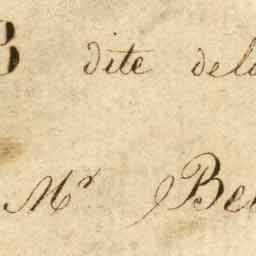 B dite delo
Mr Bel